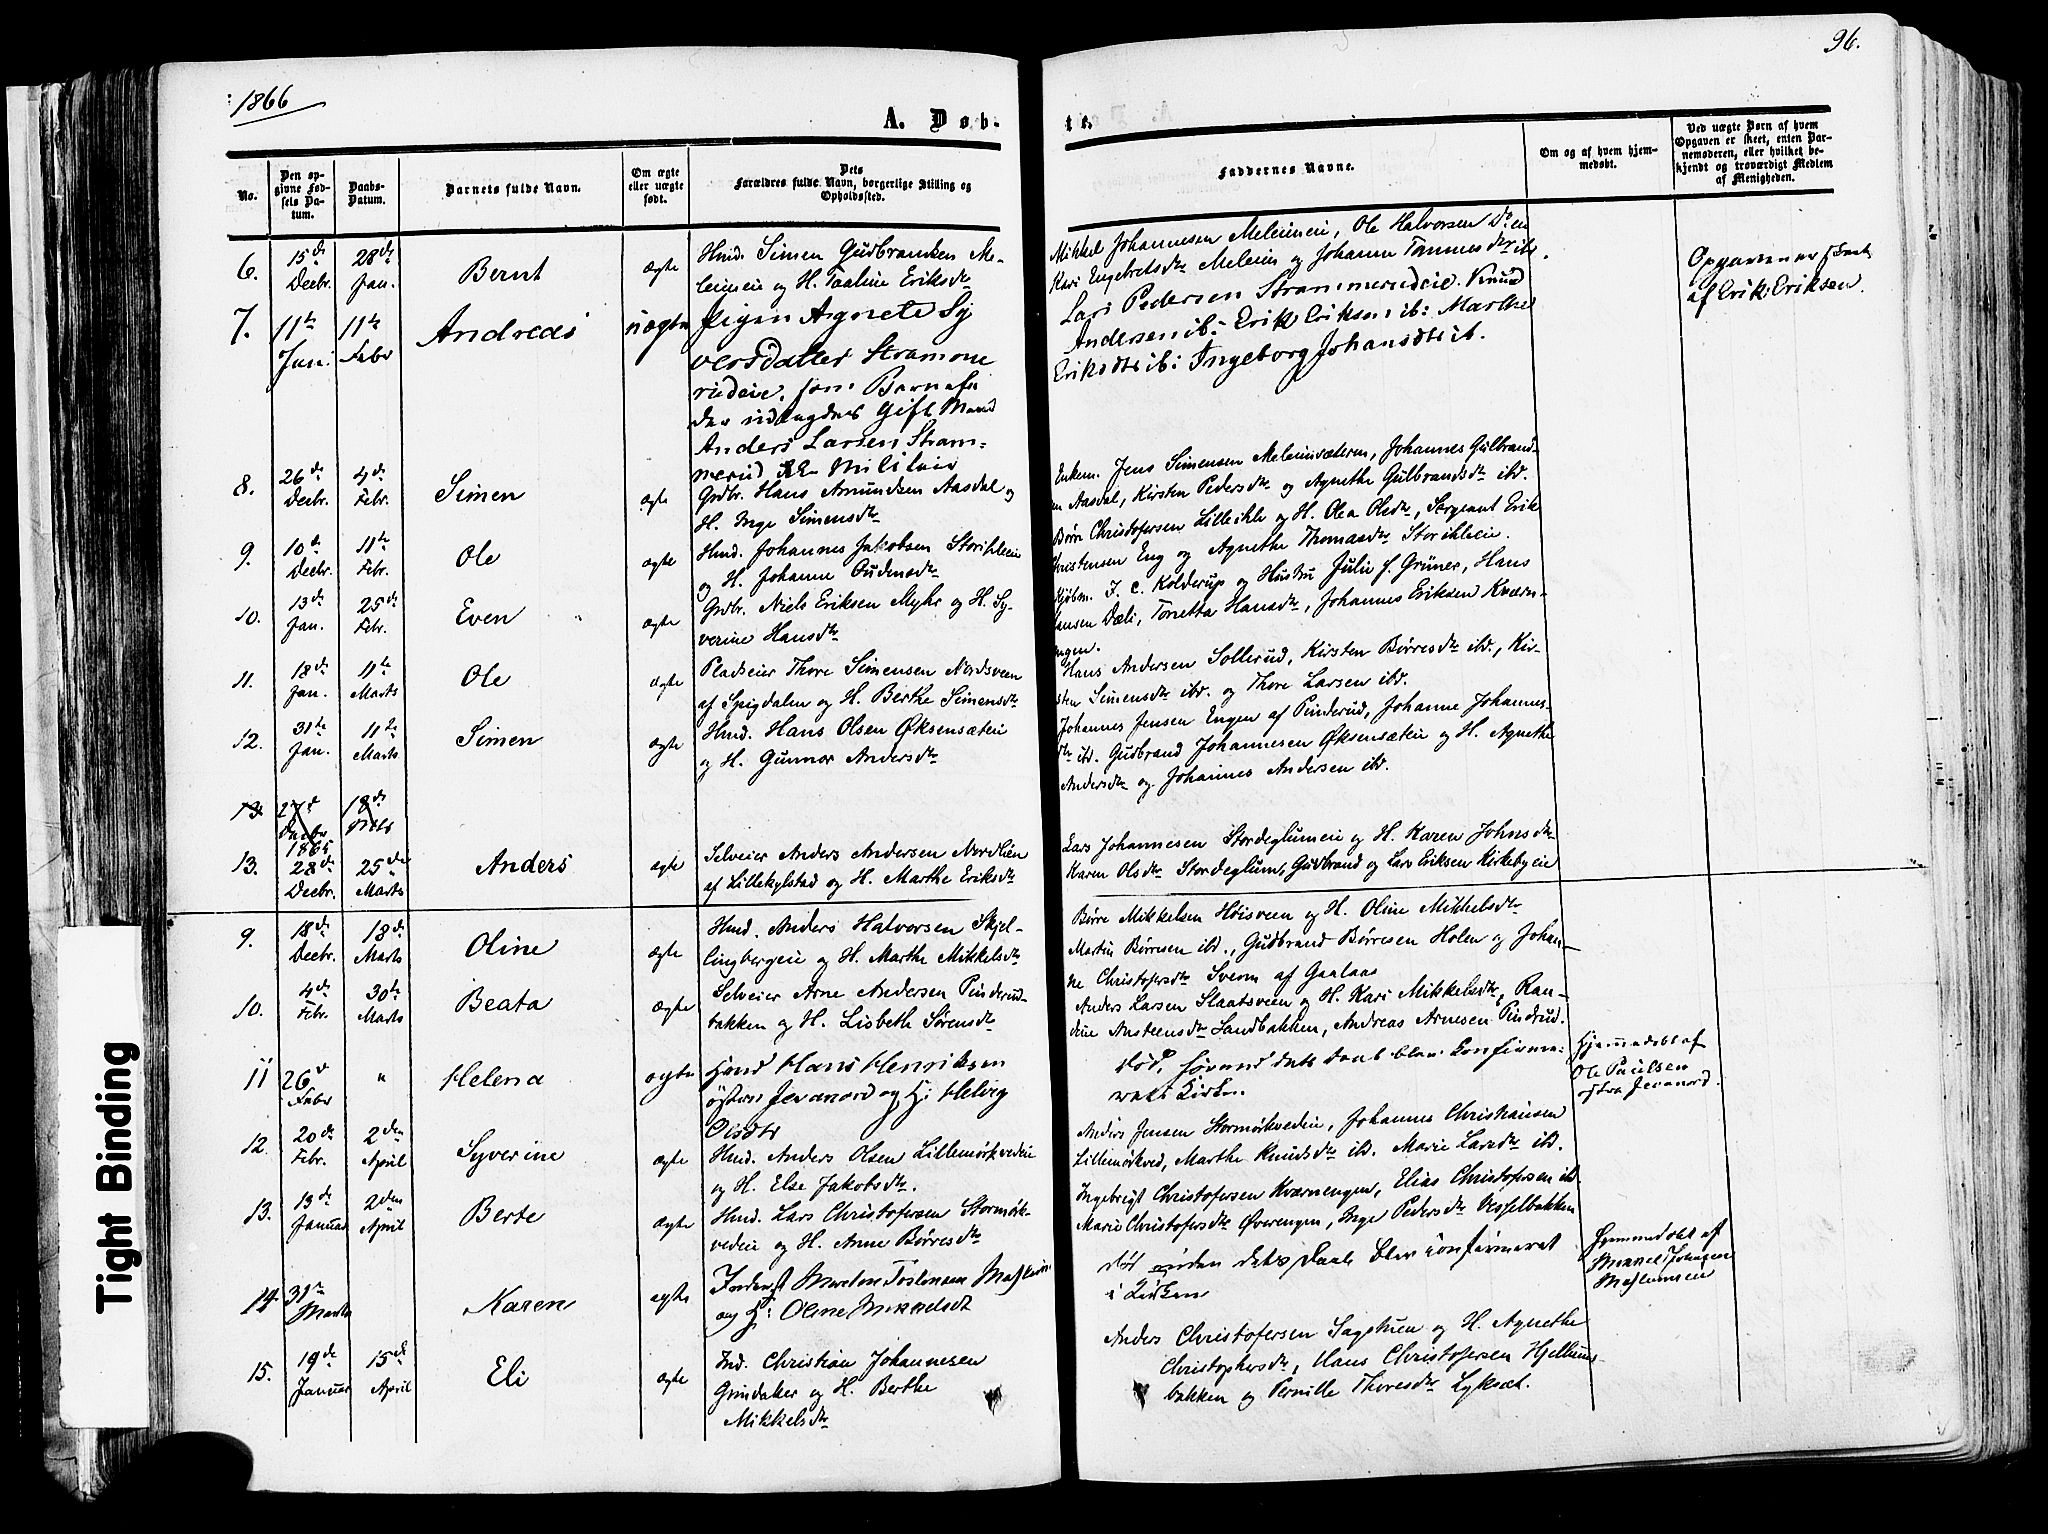 1866
96.
A. Døb-
te.
No.
Den op-
givne Fød-
sels Da-
tum.
Daabs-
Datum.
Barnets fulde Navn.
Om ægte
eller uægte
født.
Dets
Forældres fulde Navn, borgerlige Stilling og
Opholdssted.
Faddernes Navne.
Om og af hvem hjem-
medøbt.
Ved uægte Børn af hvem
Opgaven er skeet, enten Bar-
nemoderen, eller hvilket be-
kjendt og troværdigt Medlem
af Menigheden.
6.
15de
Decbr.
28de
Jan.
Bernt
ægte
Hmd. Simen Gudbransen Me-
leimeie og H. Taaline Eriksdtr
Mikkel Johannesen Meleimeie, Ole Halvorsen
Kari Engebretsdtr Meleim og Johanne
7.
11te
Jan.
11te
Febr
Andreas
uægte
Pigen Agnete Sy
versdatter Stramme
rudeie, som Barnefa
der udlægdes Gift Mand
Anders Larsen Stram-
merud
Lars Pedersen Strammerudeie. Knud
Andersen ib: Erik Eriksen ib: Marthe
Eriksdtr ib: Ingeborg Johansdtr ib.
Opgaven er skeet
af Erik Eriksen.
8.
26de
Decbr.
4de
Febr.
Simen
ægte
Grdbr. Hans Amundsen Aasdal og
H. Inge Simensdtr
Enkem. Jens Simensen Meleimsæteren, Johannes Gulbrand-
en Aasdal, Kirsten Pedersdtr og Agnethe Gulbrandsdtr ibd.
9.
10de
Decbr.
11te
Febr.
Ole
ægte
Hmd. Johannes Jakobsen Storihleeie
og H. Johanne Oudensdtr
Børre Christofersen Lilleihle og H. Olea Olsdtr, Sergeant Erik
Christensen Eng og Agnethe Thomasdtr Storihleeie.
10.
13de
Jan.
25de
Febr.
Even
ægte
Grdbr. Niels Eriksen Myhr og H. Sy-
verine Hansdtr
Kjøbm. J. C. Kolderup og Hustru Julie f. Grüner, Hans
Hansen Dæli, Torretta Hansdtr, Johannes Eriksen Kværn-
engen.
11.
18de
Jan.
11te
Marts
Ole
ægte
Pladseier Thore Simensen Nordsveen
af Spigdalen og H. Berthe Simensdtr
Hans Andersen Sollerud, Kirsten Børresdtr ibd., Kir-
sten Simensdtr ibd. og Thore Larsen ibd.
12.
31te
Jan.
11te
Marts
Simen
ægte
Hmd. Hans Olsen Øksensæteie
og H. Gunnor Andersdtr
Johannes Jensen Engen af Pinderud, Johanne Johannes-
dtr ibd. Gudbrand Johannesen Øksensæteie og H. Agnethe
Andersdtr og Johannes Andersen ibd.
13.
27de
Decbr
18de
1865
13.
28de
Decbr.
25de
Marts
Anders
ægte
Selveier Anders Andersen Nordlien
af Lillekylstad og H. Marthe Eriksdtr
Lars Johannesen Stordeglumeie og H. Karen Johnsdtr
Karen Olsdtr Stordeglum, Gudbrand og Lars Eriksen Kirkebyeie
9.
18de
Decbr.
18de
Marts
Oline
ægte
Hmd. Anders Halvorsen Skjel-
lingbergeie og H. Marthe Mikkelsdtr
Børre Mikkelsen Høisveen og H. Oline Mikkelsdtr
Martin Børresen ibd., Gudbrand Børresen Holen og Johan-
ne Christofersdtr Sveen af Gaalaas
10.
4de
Febr.
30te
Marts
Beata
ægte
Selveier Arne Andersen Pinderud-
bakken og H. Lisbeth Sørensdtr
Anders Larsen Slaatsveen og H. Kari Mikkelsdtr, Ran-
dine Austeensdtr Sandbakken, Andreas Arnesen Pindrud.
11
26de
Febr
"
Helena
ægte
Hmd Hans Henriksen
østern Jevanord og H: Helvig
Olsdtr
død, førend dets Daab blev Confirme-
ret i Kirken.
Hjemmedøbt af
Ole Paulsen
østre Jevanord.
12.
20de
Febr.
2den
April
Syverine
ægte
Hmd. Anders Olsen Lillemørkvedeie
og H. Else Jakobsdtr.
Anders Jensen Stormørkvedeie, Johannes Christiansen
Lillemørkved, Marthe Knudsdtr ibd. Marie Larsdtr ibd.
13.
13de
Januar
2den
April
Berte
ægte
Hmd. Lars Christofersen Stormørk-
vedeie og H. Anne Børresdtr
Ingebrigt Christofersen Kværnengen, Elias Christofersen ibd.
Marie Christofersdtr Øverengen, Inge Pedersdtr Vesselbakken
14
31te
Marts
Karen
ægte
og H: Oline Mikkelsdt
død inden dets Daab blev confirmeret
i Kirken
Hjemmedøbt af
Mikkel Johnsen
15.
19de
Januar
15de
April
Eli
ægte
Ind. Christian Johannesen
Grindaker og H. Berthe
Mikkelsdtr
Anders Christofersen Sagstuen og H. Agnethe
Christophersdtr, Hans Christofersen Hjellum-
bakken og Pernille Thoresdtr Lyksæt.
Tight Binding